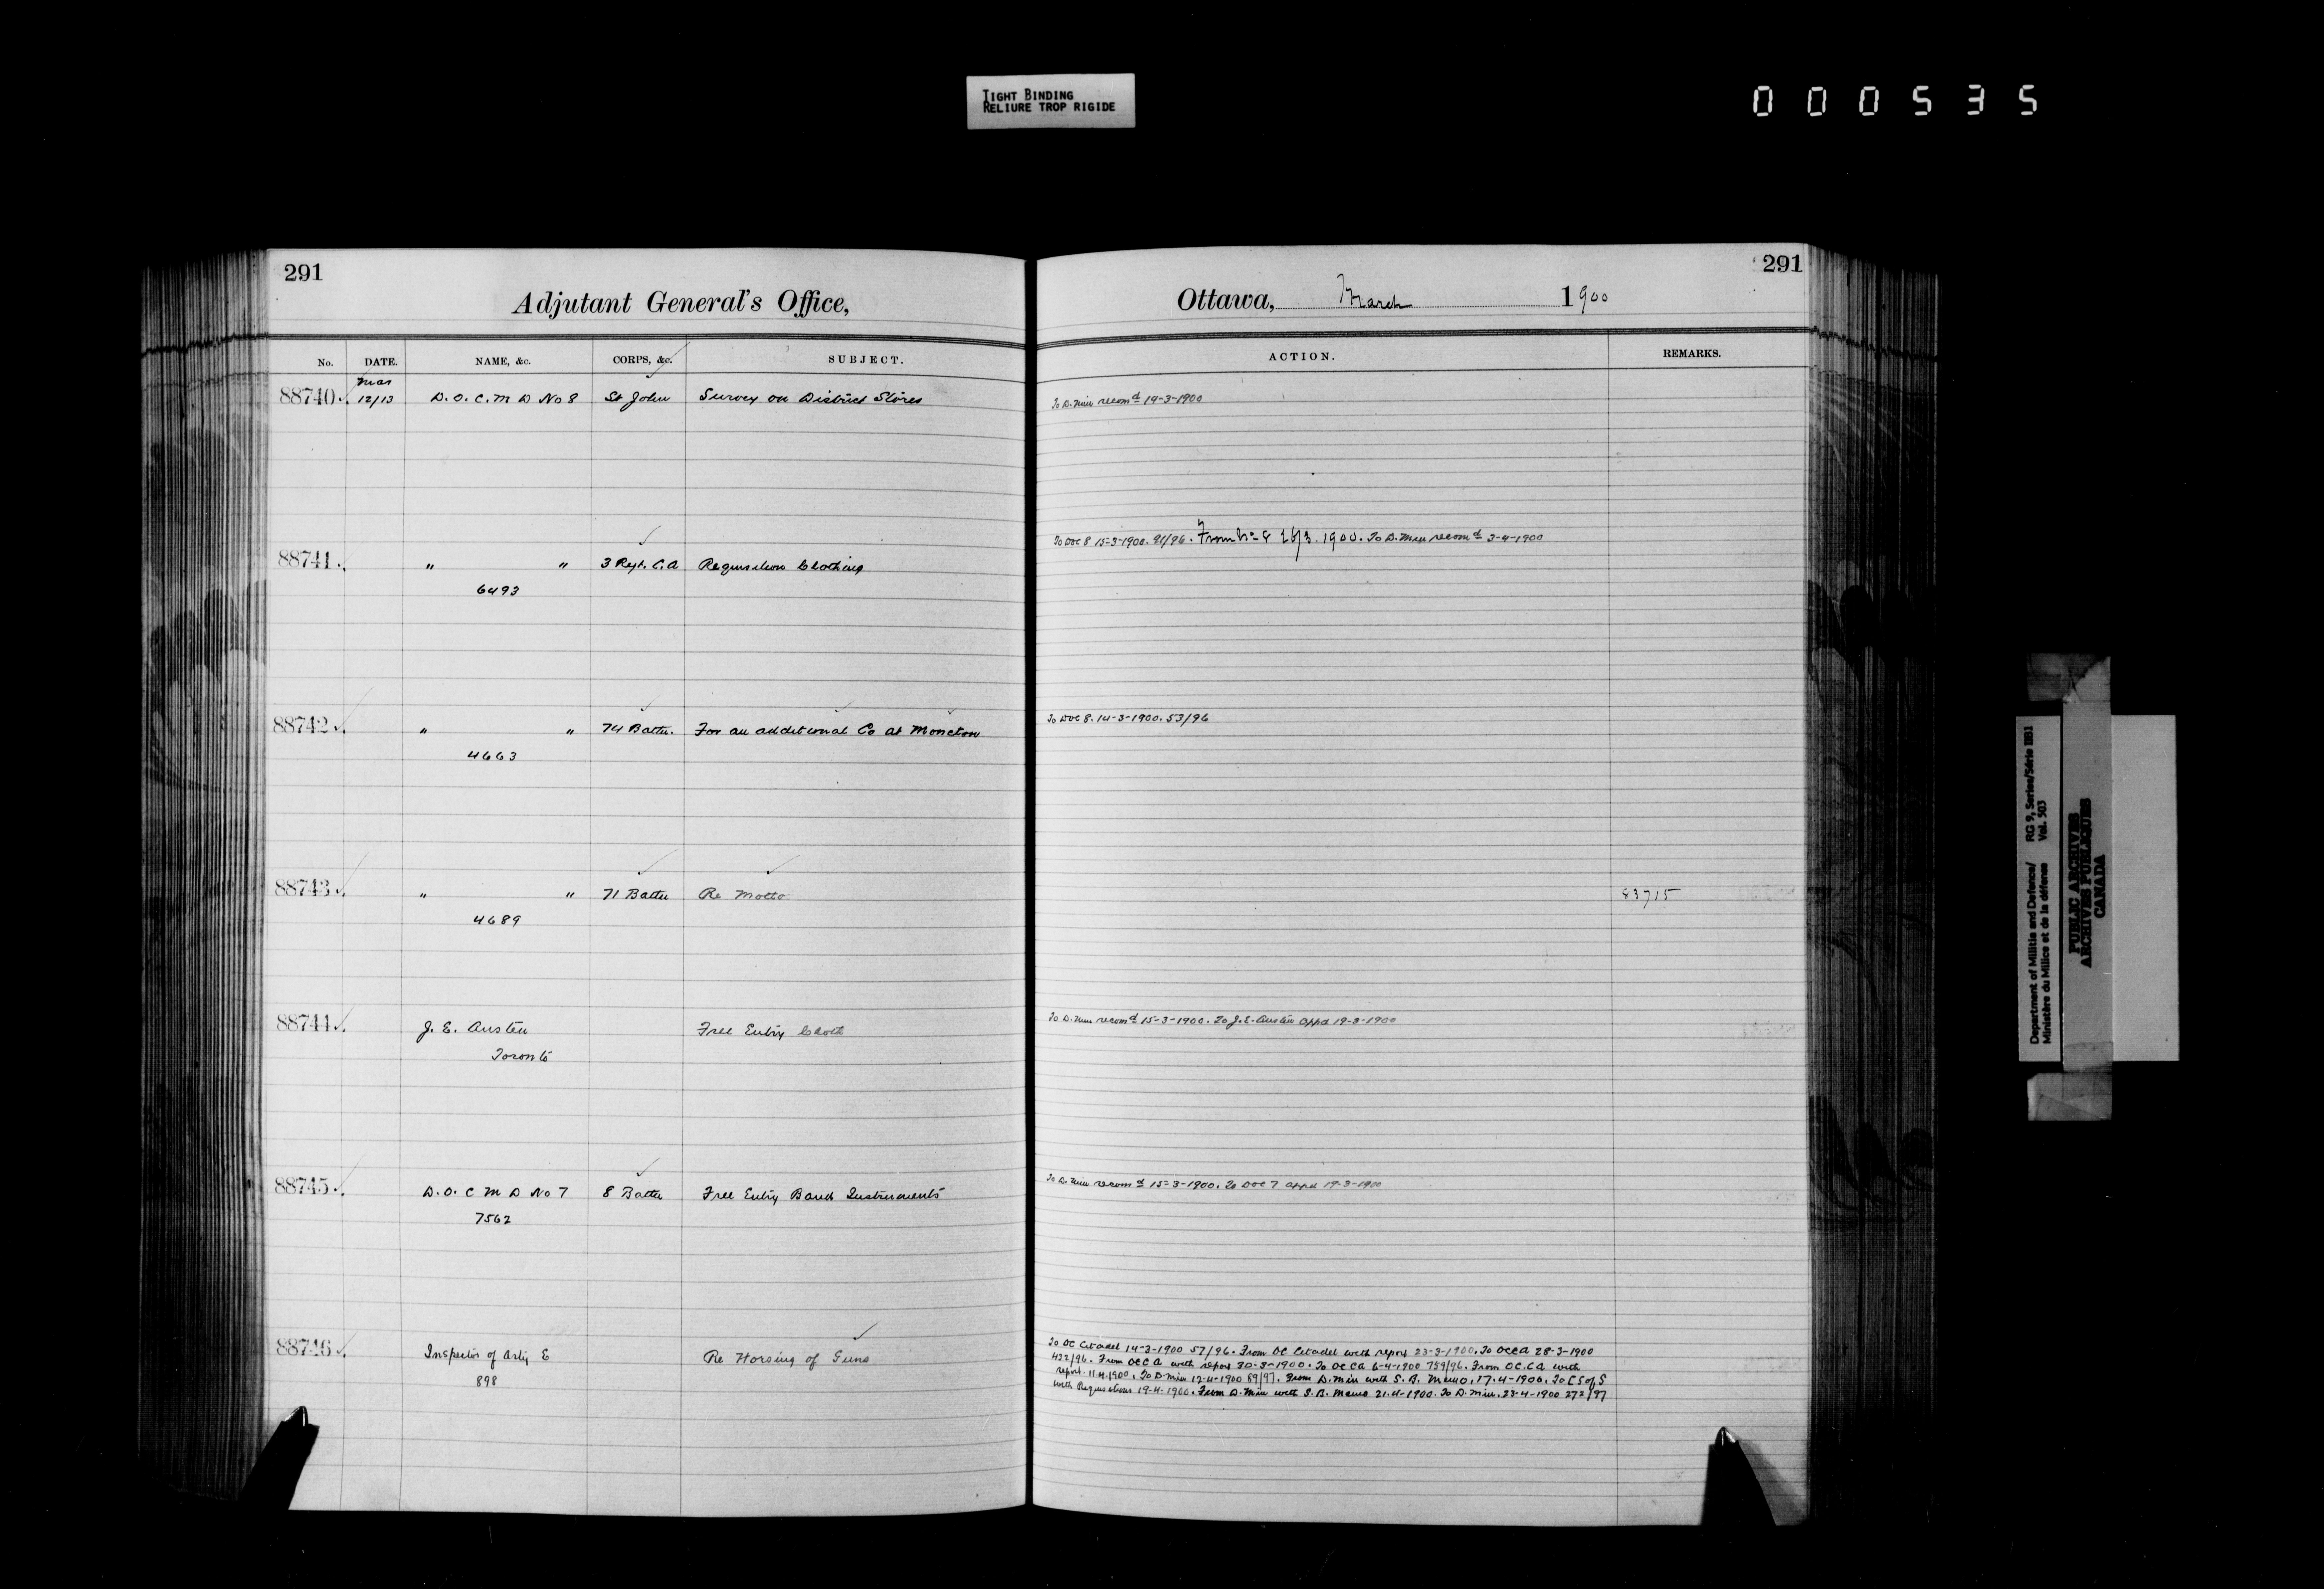 TIGHT BINDING
RELIURE TROP RIGIDE
000535
291
Adjutant General's Office,
No. DATE. NAME, &c. CORPS, &c. SUBJECT.
Mar
88740 12/13 D.O.C.M D No 8 St John Survey on District Stores
88741 " " 3 Regt. C.A Requisition Clothing
6493
88742 " " 74 Battn. For an additional Co at Moncton
4663
88743 " " 71 Battn Re Motto
4689
88744 J. E. Austen Free Entry Cloth
Toronto
88745 D.O.C M D No 7 8 Battn Free Entry Band Instruments
7562
88746 Inspector of Arty E Re Horsing of Guns
898
291
Ottawa, March 1900
ACTION. REMARKS.
To D. Min recomd 14-3-1900
To DOC 8 15-3-1900. 91/96. From No 8 26/3.1900. To D. Min recomd 3-4-1900
To DOC 8. 14-3-1900. 53/96
83715
To D. Min recomd 15-3-1900. To J.E. Austen appd 19-3-1900
To D. Min recomd 15-3-1900. To DOC 7 appd 19-3-1900
To OC Citadel 14-3-1900 57/96. From OC Citadel with report 23-3-1900. To OCCA 28-3-1900
432/96. From OCCA with report 30-3-1900. To OCCA 6-4-1900 759/96. From OC.CA with
report. 11.4.1900. To D. Min 12-4-1900 89/97. From D. Min with S. B. Memo. 17.4-1900. To C S of S
with Requisitions 19-4-1900. From D. Min with S. B. Memo 21.4-1900. To D. Min. 23-4-1900 272/97
Department of Militia and Defence/ RG 9, Series/Série IIB1
Ministère du Milice et de la défense Vol. 503
PUBLIC ARCHIVES
ARCHIVES PUBLIQUES
CANADA